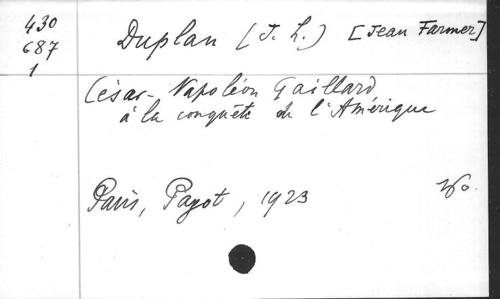 430
687
1
Duplan (J. L.) [Jean Farmer]
César-Napoléon Gaillard
à la conquête de l'Amérique
Paris, Payot, 1923